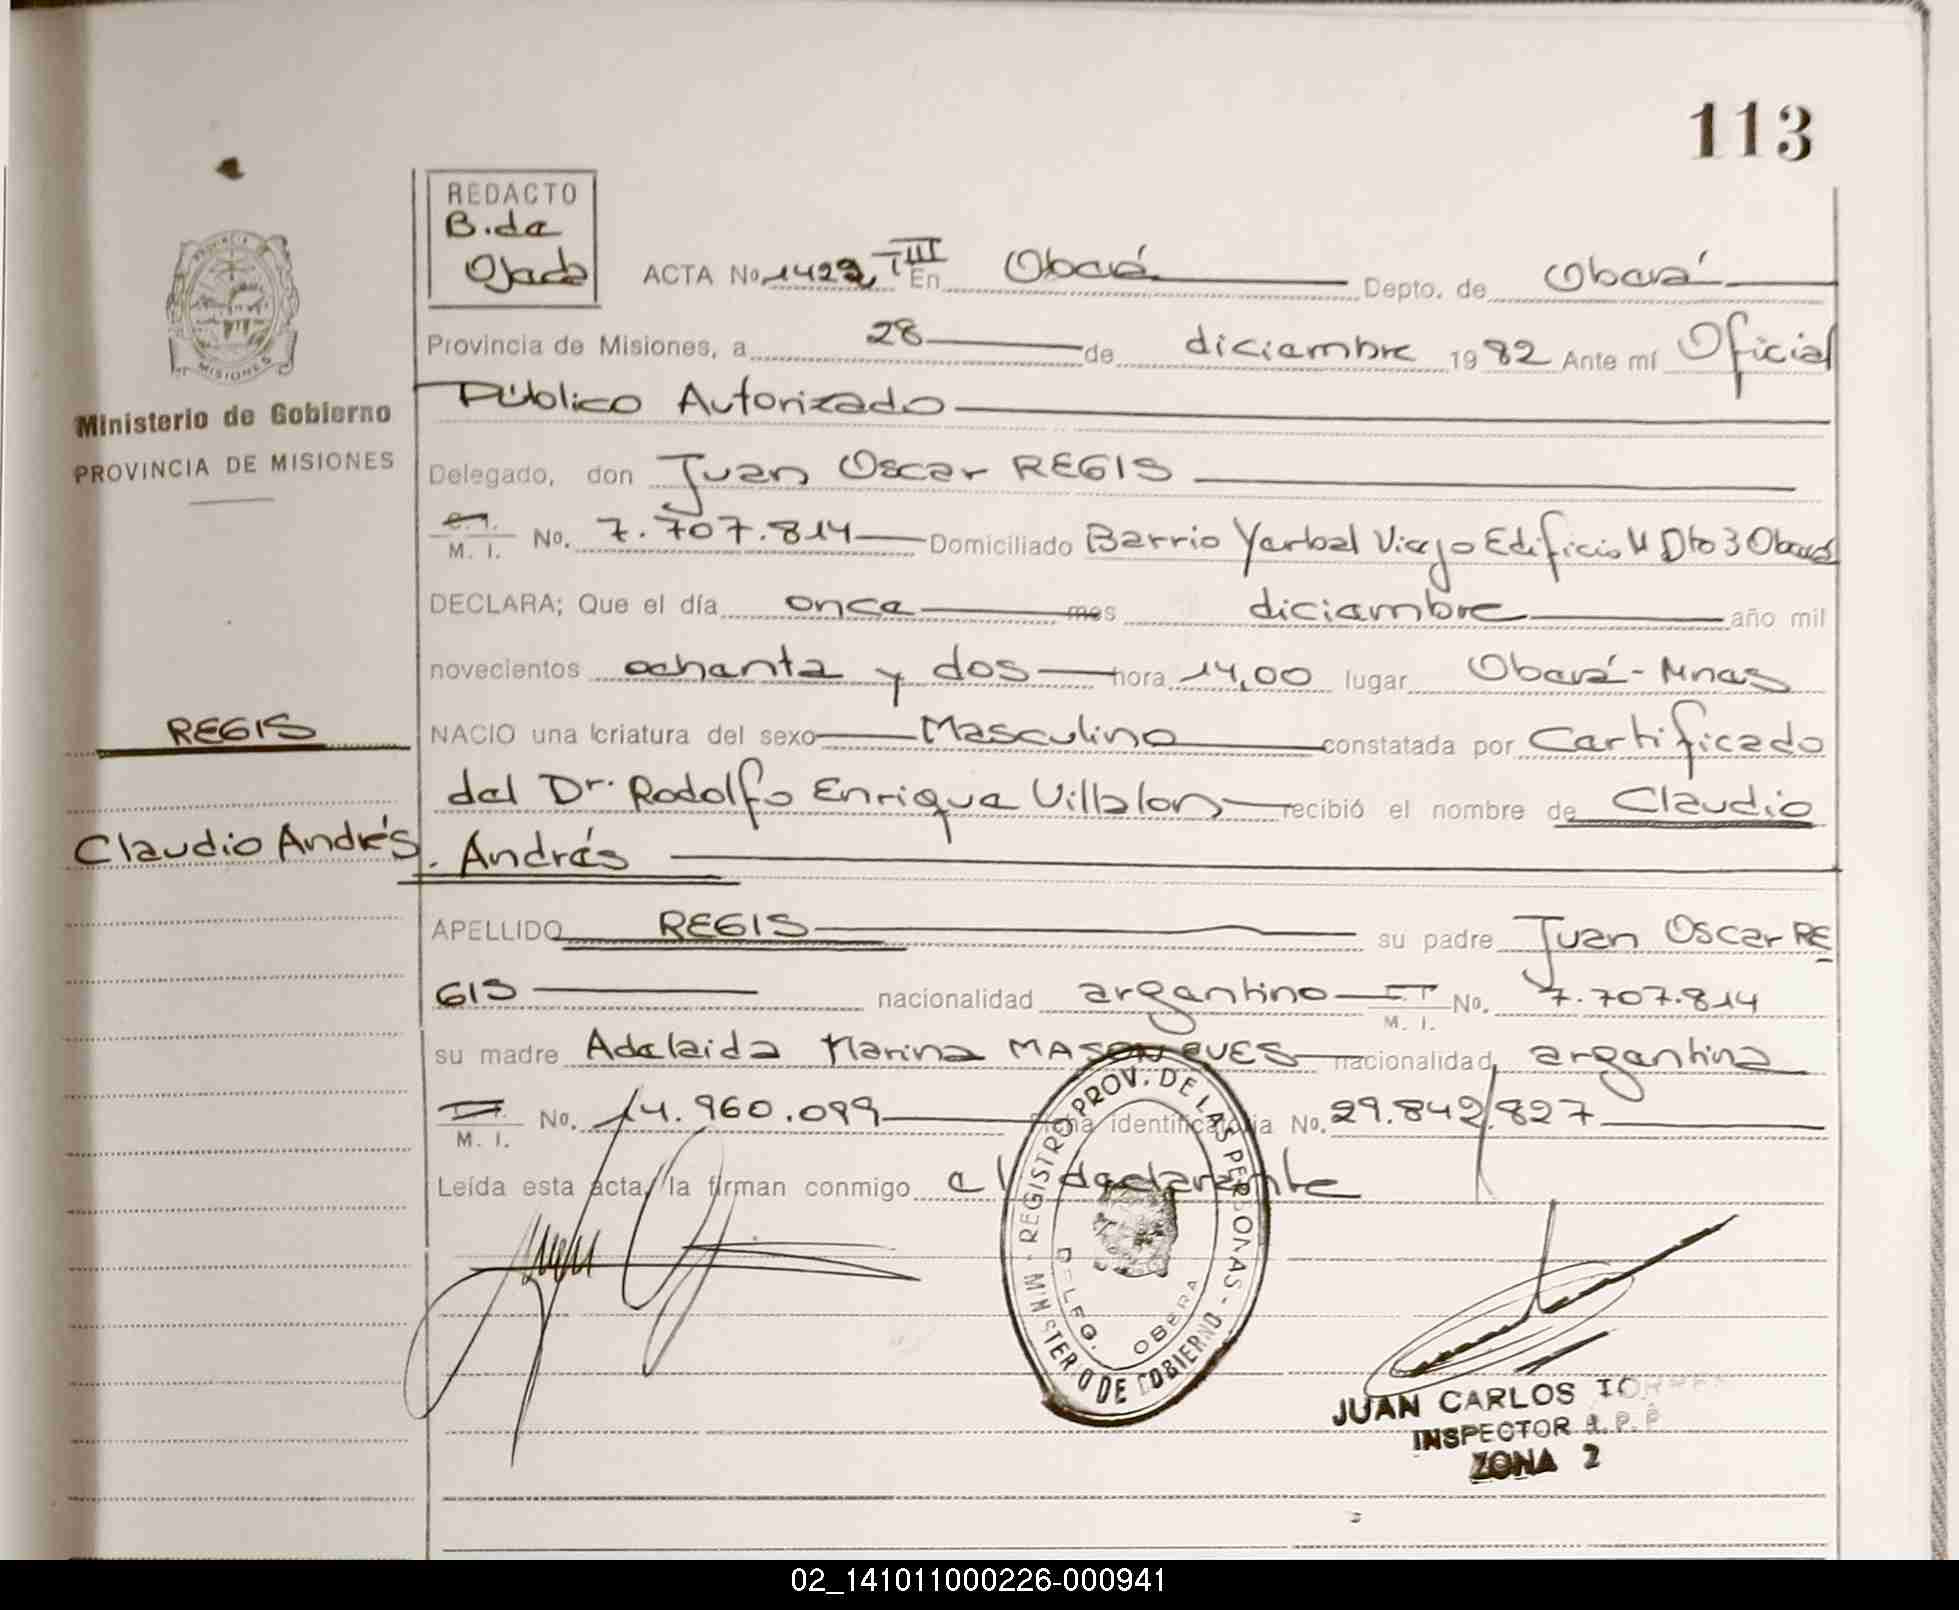 113
REDACTO
B. de
Ojeda
ACTA No. 1422, T III En Oberá Depto. de Oberá
PROVINCIA
MISIONES
Provincia de Misiones, a 28 de diciembre 1982 Ante mí Oficial
Ministerio de Gobierno
Público Autorizado
PROVINCIA DE MISIONES
Delegado, don Juan Oscar REGIS
M. I. No. 7.707.814 Domiciliado Barrio Yerbal Viejo Edificio Dto 3 Oberá
DECLARA; Que el día once mes diciembre año mil
novecientos ochenta y dos hora 14,00 lugar Oberá - Mnes
REGIS
NACIO una criatura del sexo Masculino constatada por Certificado
del Dr. Rodolfo Enrique Villalon recibió el nombre de Claudio
Claudio Andrés. Andrés
APELLIDO REGIS su padre Juan Oscar RE
GIS nacionalidad argentino M. I. No. 7.707.814
su madre Adelaida Marina nacionalidad argentina
M. I. No. 14.960.099 Ficha identificatoria No. 29.842/827
Leída esta acta, la firman conmigo el declarante
REGISTRO PROV. DE LAS PERSONAS - MINISTERIO DE GOBIERNO
DELEG. OBERA
JUAN CARLOS
INSPECTOR R.P.P
ZONA 2
02_141011000226-000941